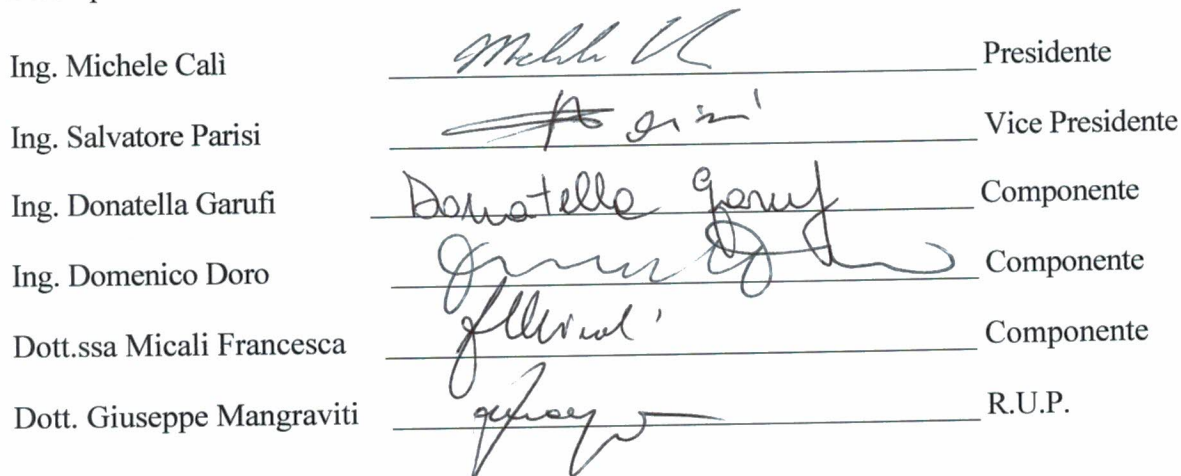 Ing. Michele Calì Presidente
Ing. Salvatore Parisi Vice Presidente
Ing. Donatella Garufi Donatella Garuf Componente
Ing. Domenico Doro Componente
Dott.ssa Micali Francesca Componente
Dott. Giuseppe Mangraviti R.U.P.